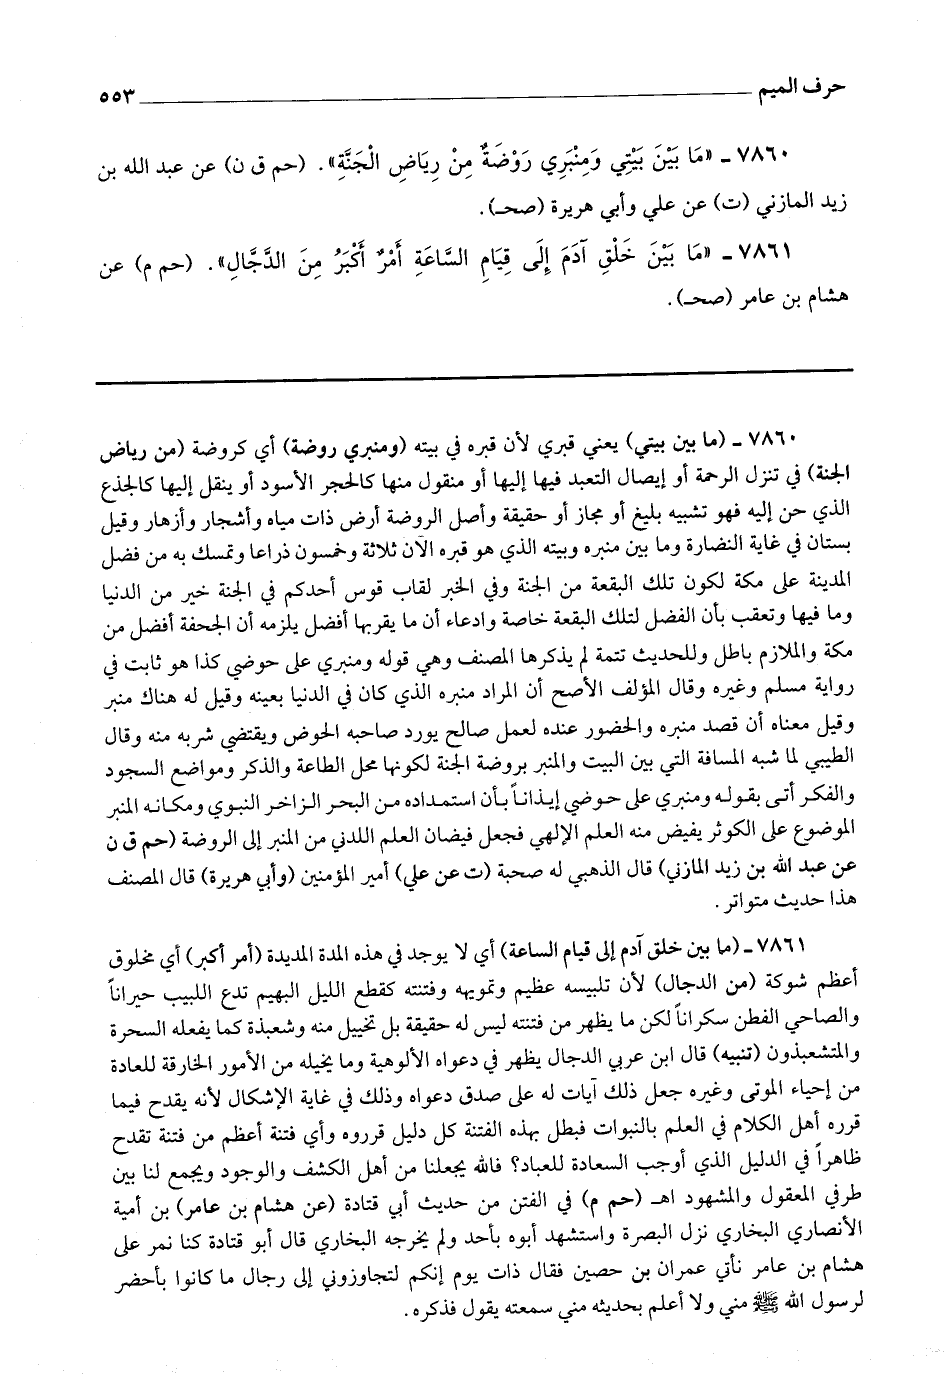 حرف الميم ٥٥٣
٧٨٦٠ ـ «مَا بَيْنَ بَيْتِي وَمِنْبَرِي رَوْضَةٌ مِنْ رِيَاضِ الْجَنَّةِ». (حم ق ن) عن عبد الله بن
زيد المازني (ت) عن علي وأبي هريرة (صحـ).
٧٨٦١ ـ «مَا بَيْنَ خَلْقِ آدَمَ إِلَى قِيَامِ السَّاعَةِ أَمْرٌ أَكْبَرُ مِنَ الدَّجَّالِ». (حم م) عن
هشام بن عامر (صحـ).
٧٨٦٠ ـ (ما بين بيتي) يعني قبري لأن قبره في بيته (ومنبري روضة) أي كروضة (من رياض
الجنة) في تنزل الرحمة أو إيصال التعبد فيها إليها أو منقول منها كالحجر الأسود أو ينقل إليها كالجذع
الذي حن إليه فهو تشبيه بليغ أو مجاز أو حقيقة وأصل الروضة أرض ذات مياه وأشجار وأزهار وقيل
بستان في غاية النضارة وما بين منبره وبيته الذي هو قبره الآن ثلاثة وخمسون ذراعا وتمسك به من فضل
المدينة على مكة لكون تلك البقعة من الجنة وفي الخبر لقاب قوس أحدكم في الجنة خير من الدنيا
وما فيها وتعقب بأن الفضل لتلك البقعة خاصة وادعاء أن ما يقربها أفضل يلزمه أن الجحفة أفضل من
مكة والملازم باطل وللحديث تتمة لم يذكرها المصنف وهي قوله ومنبري على حوضي كذا هو ثابت في
رواية مسلم وغيره وقال المؤلف الأصح أن المراد منبره الذي كان في الدنيا بعينه وقيل له هناك منبر
وقيل معناه أن قصد منبره والحضور عنده لعمل صالح يورد صاحبه الحوض ويقتضي شربه منه وقال
الطيبي لما شبه المسافة التي بين البيت والمنبر بروضة الجنة لكونها محل الطاعة والذكر ومواضع السجود
والفكر أتى بقوله ومنبري على حوضي إيذاناً بأن استمداده من البحر الزاخر النبوي ومكانه المنبر
الموضوع على الكوثر يفيض منه العلم الإلهي فجعل فيضان العلم اللدني من المنبر إلى الروضة (حم ق ن
عن عبد الله بن زيد المازني) قال الذهبي له صحبة (ت عن علي) أمير المؤمنين (وأبي هريرة) قال المصنف
هذا حديث متواتر.
٧٨٦١ ـ (ما بين خلق آدم إلى قيام الساعة) أي لا يوجد في هذه المدة المديدة (أمر أكبر) أي مخلوق
أعظم شوكة (من الدجال) لأن تلبيسه عظيم وتمويهه وفتنته كقطع الليل البهيم تدع اللبيب حيراناً
والصاحي الفطن سكراناً لكن ما يظهر من فتنته ليس له حقيقة بل تخييل منه وشعبذة كما يفعله السحرة
والمتشعبذون (تنبيه) قال ابن عربي الدجال يظهر في دعواه الألوهية وما يخيله من الأمور الخارقة للعادة
من إحياء الموتى وغيره جعل ذلك آيات له على صدق دعواه وذلك في غاية الإشكال لأنه يقدح فيما
قرره أهل الكلام في العلم بالنبوات فبطل بهذه الفتنة كل دليل قرروه وأي فتنة أعظم من فتنة تقدح
ظاهراً في الدليل الذي أوجب السعادة للعباد؟ فالله يجعلنا من أهل الكشف والوجود ويجمع لنا بين
طرفي المعقول والمشهود اهـ (حم م) في الفتن من حديث أبي قتادة (عن هشام بن عامر) بن أمية
الأنصاري البخاري نزل البصرة واستشهد أبوه بأحد ولم يخرجه البخاري قال أبو قتادة كنا نمر على
هشام بن عامر نأتي عمران بن حصين فقال ذات يوم إنكم لتجاوزوني إلى رجال ما كانوا بأحضر
لرسول الله ﷺ مني ولا أعلم بحديثه مني سمعته يقول فذكره.